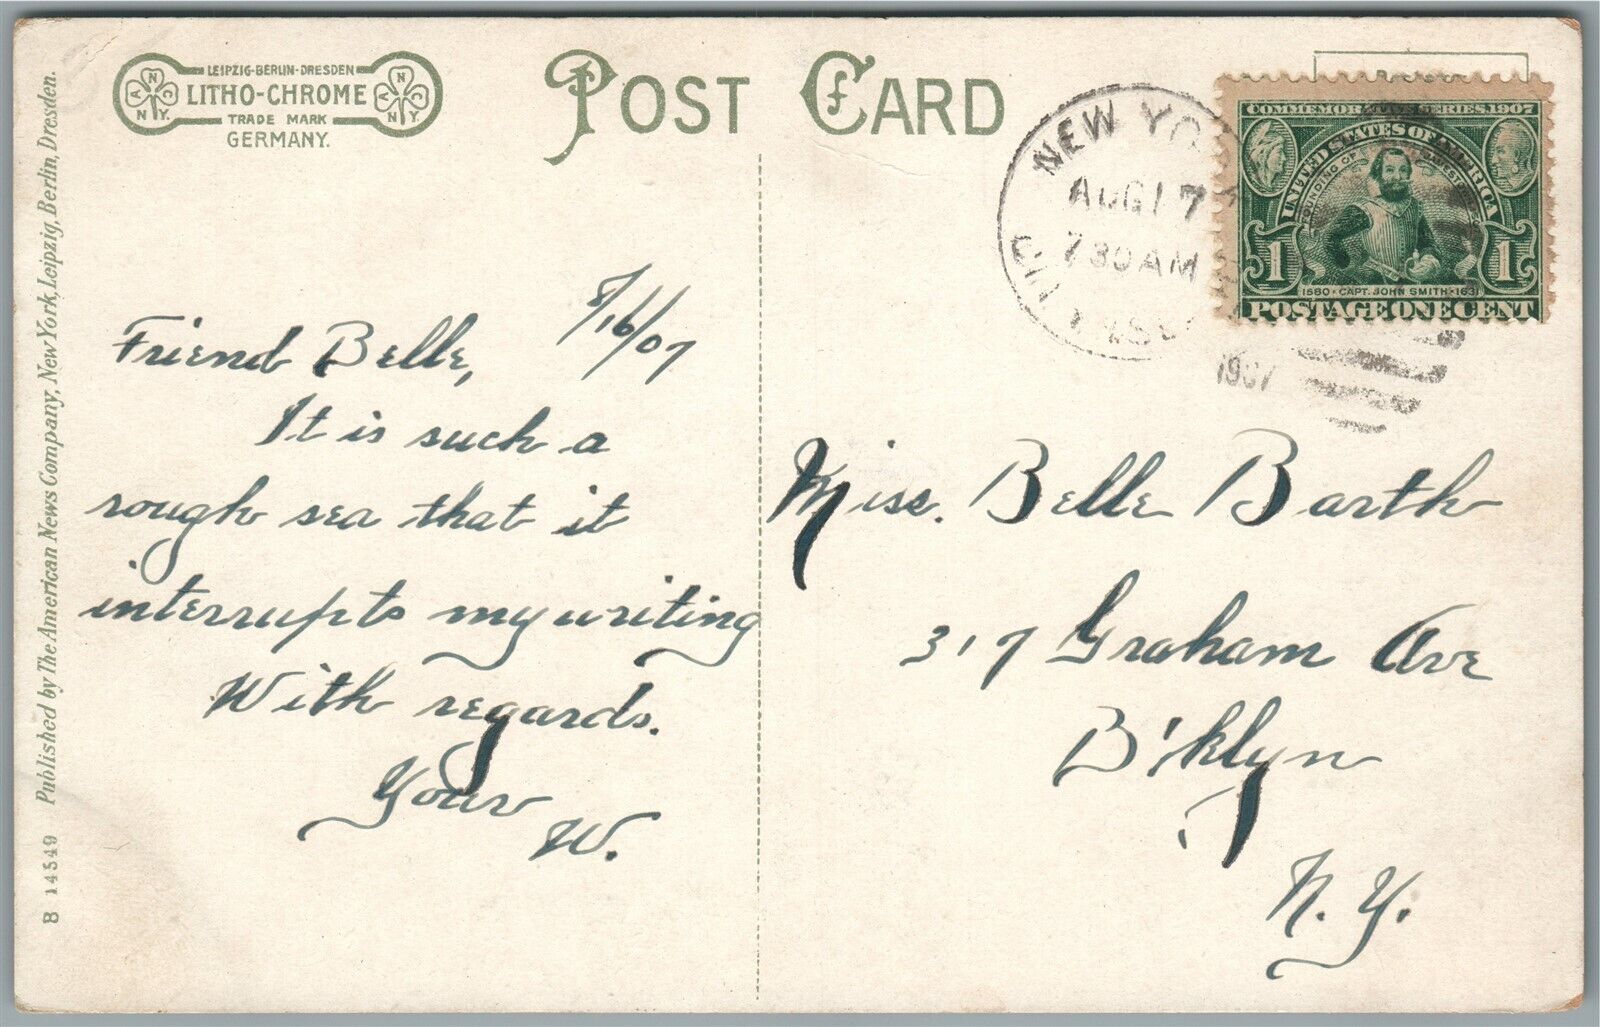 LEIPZIG-BERLIN-DRESDEN
LITHO-CHROME
TRADE MARK
GERMANY.
POST CARD
NEW YO
AUG 17
730 AM
1907
COMMEMOR SERIES 1907
UNITED STATES OF AMERICA
FOUNDING OF
1
1
1580 · CAPT. JOHN SMITH · 1631
POSTAGE ONE CENT
8/16/07
Friend Belle,
It is such a
rough sea that it
interrupts my writing
With regards.
Your
W.
Miss. Belle Barth
317 Graham Ave
B'klyn
N. Y.
B 14549 Published by The American News Company, New York, Leipzig, Berlin, Dresden.